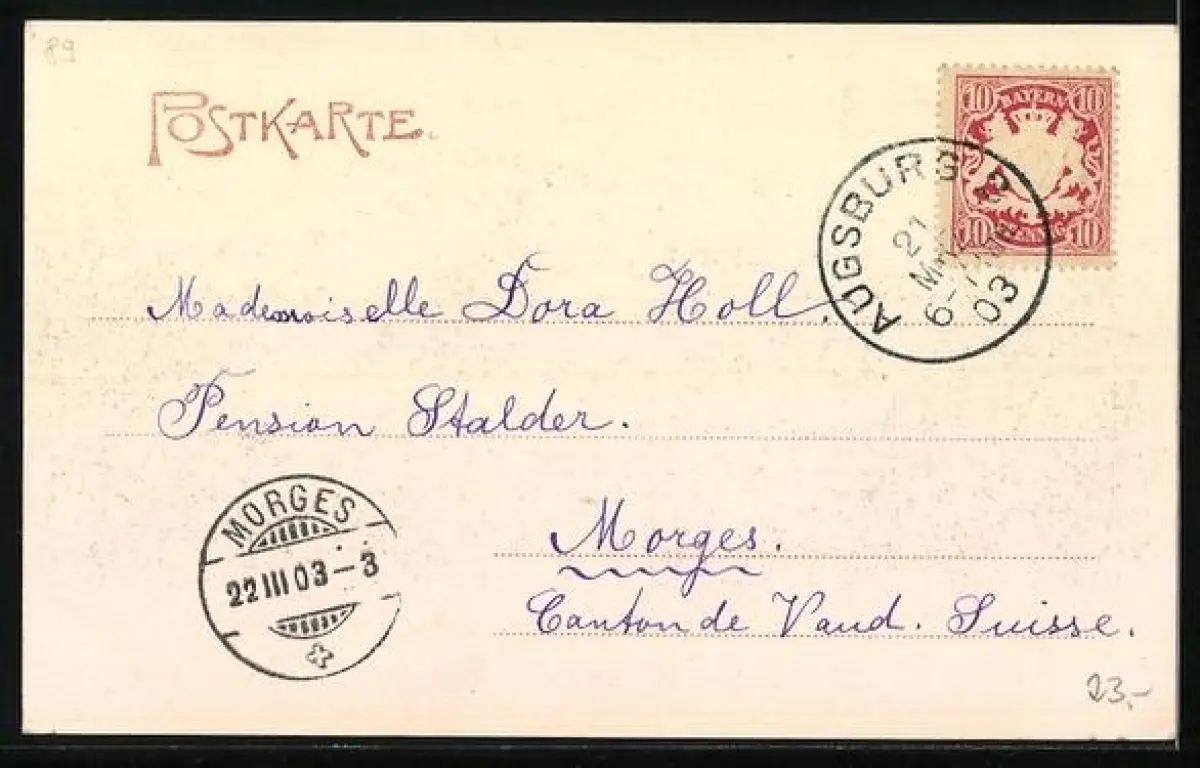 89
POSTKARTE.
10 BAYERN 10
10 PFENNIG 10
AUGSBURG 2
21
6-7
03
Mademoiselle Dora Holl.
Pension Stalder.
MORGES
22 III 03 - 3
Morges.
Canton de Vaud. Suisse.
23,-